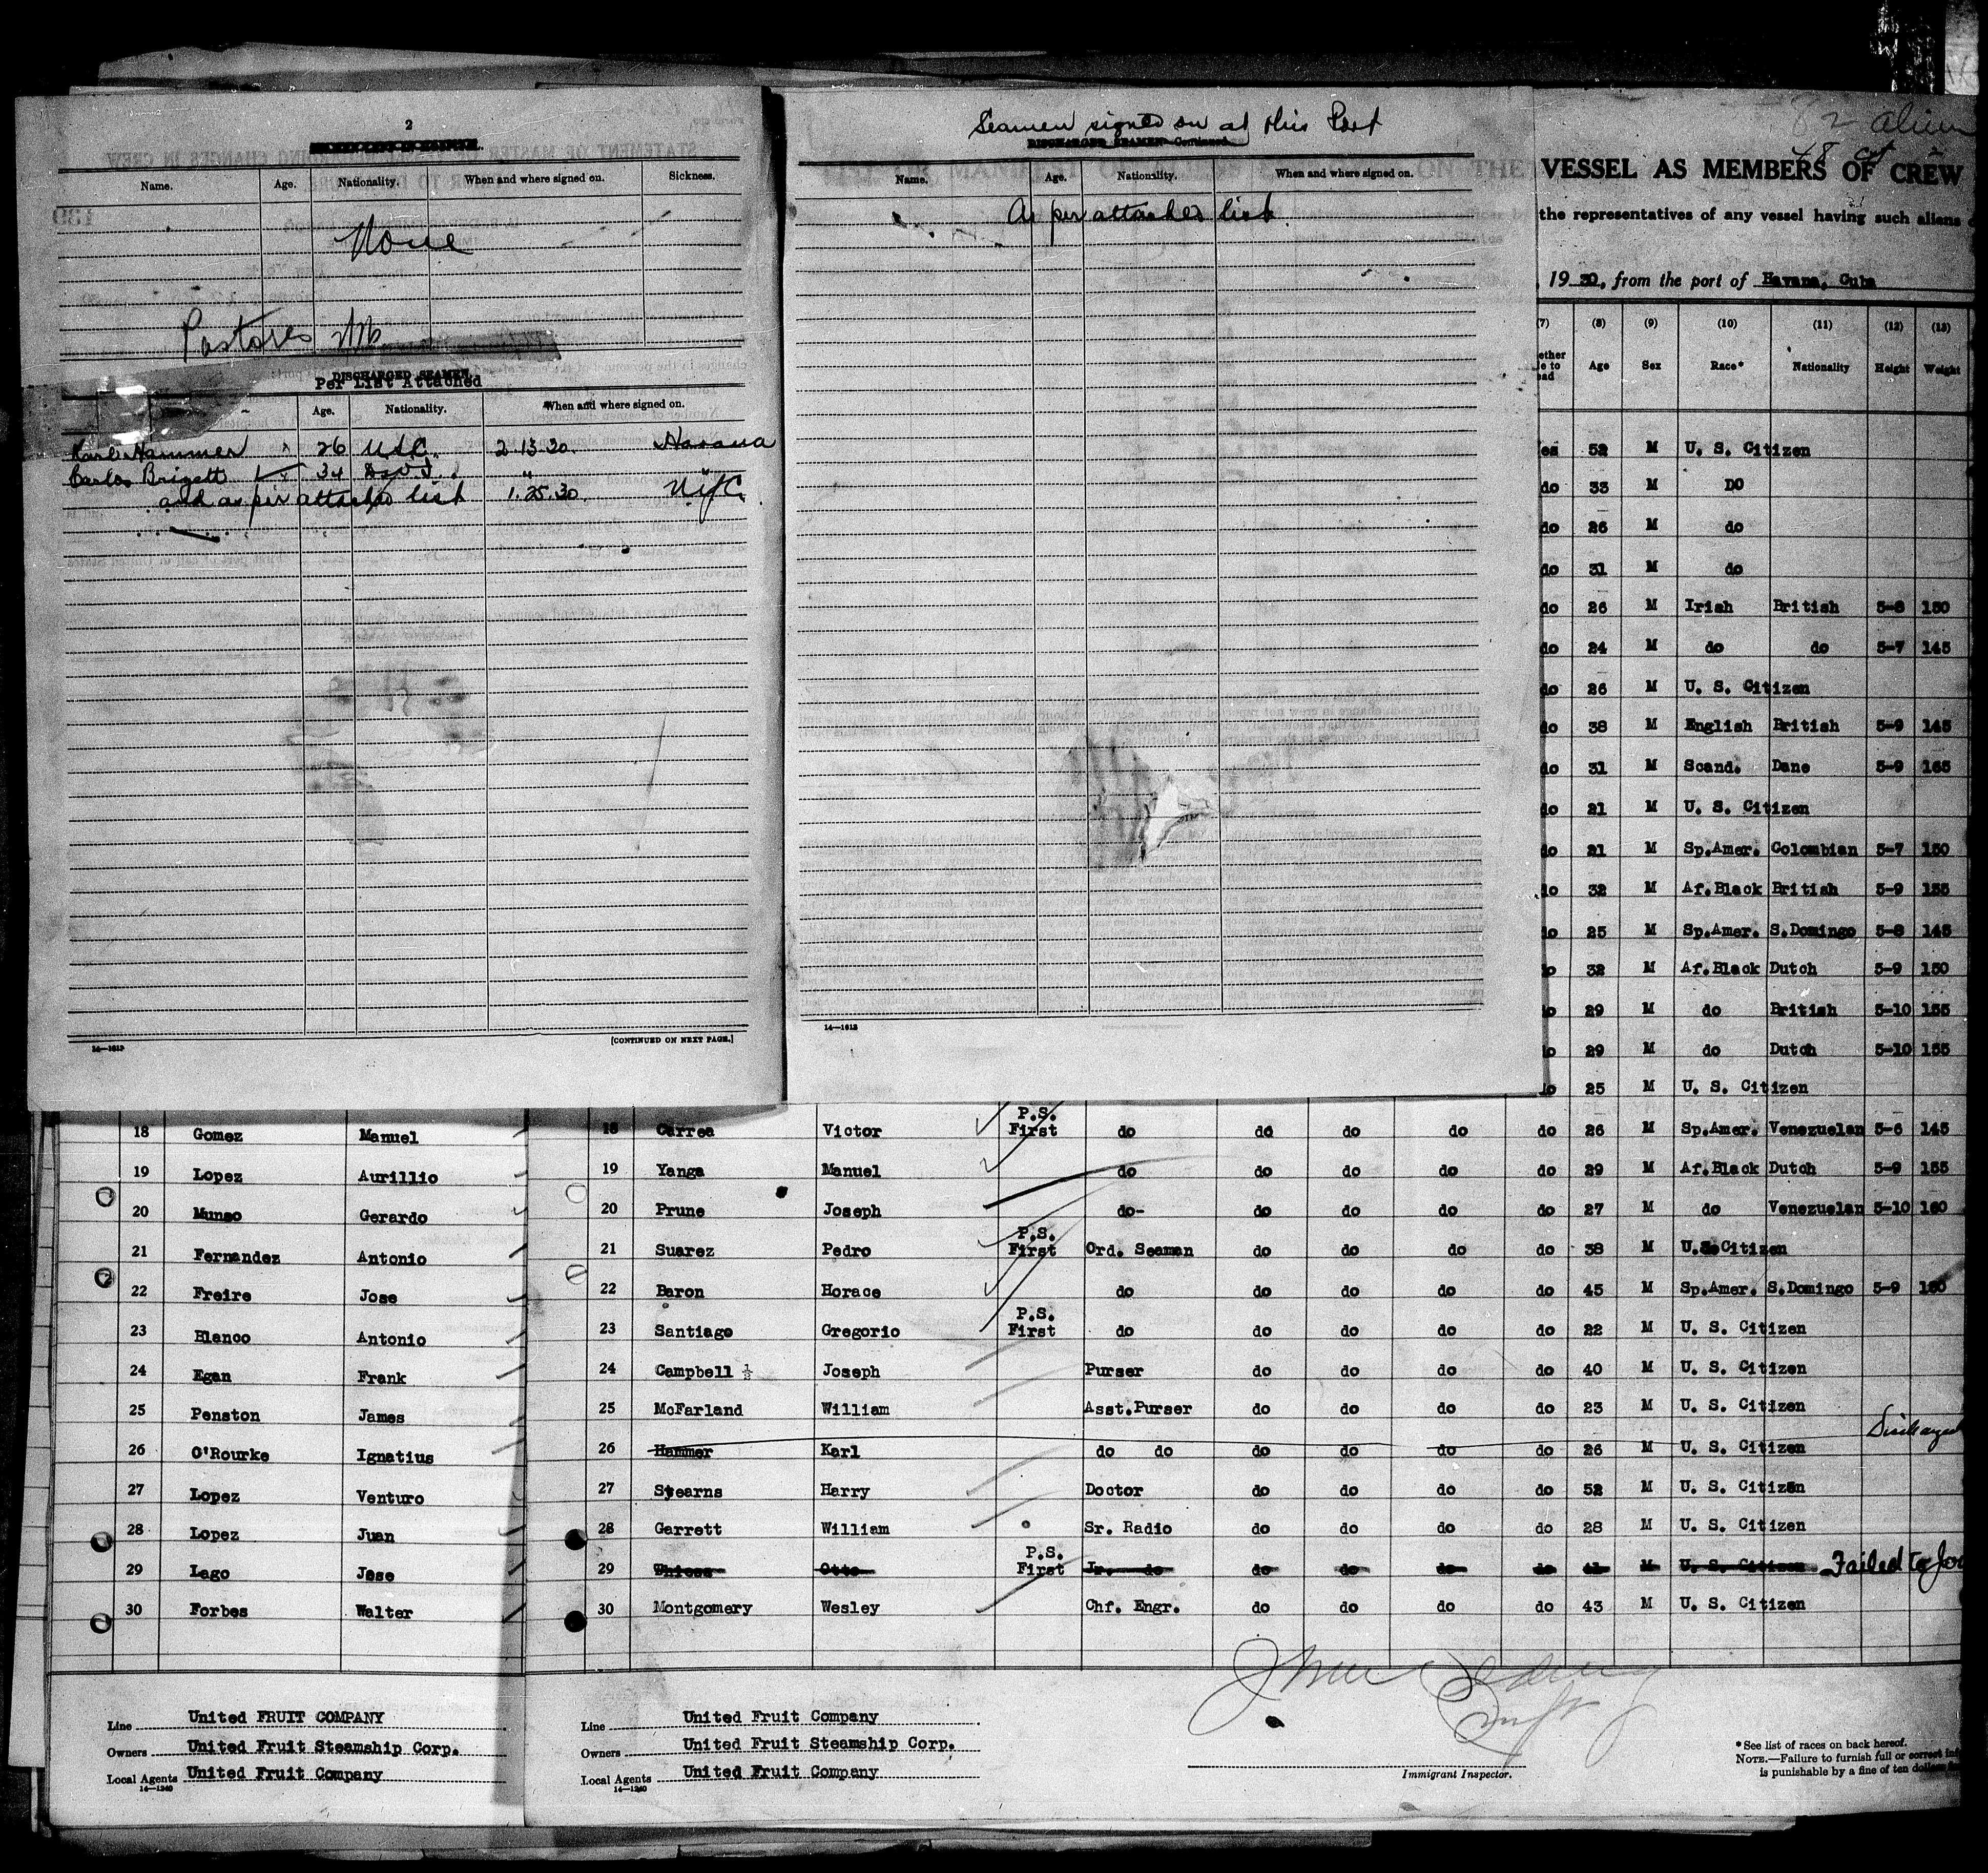 2
Name. Age. Nationality. When and where signed on. Sickness.
None
Pastores
DISCHARGED SEAMEN.
Per List Attached
Age. Nationality. When and where signed on.
Karl Hammer 26 U.S.C. 2.13.30. Havana
Carlos Brigett 34 "
and as per attached list 1.25.30. N.Y.C.
14—1613
[CONTINUED ON NEXT PAGE.]
Seamen signed on at this Port
DISCHARGED SEAMEN—Continued.
Name. Age. Nationality. When and where signed on.
As per attached list
14—1613
82 Alien
48 cit
VESSEL AS MEMBERS OF CREW
the representatives of any vessel having such aliens
1930, from the port of Havana, Cuba
(7) (8) (9) (10) (11) (12) (13)
Age Sex Race* Nationality Height Weight
52 M U. S. Citizen
do 33 M DO
do 26 M do
do 31 M do
do 26 M Irish British 5-8 150
do 24 M do do 5-7 145
do 26 M U. S. Citizen
do 38 M English British 5-9 145
do 31 M Scand. Dane 5-9 165
do 21 M U. S. Citizen
do 21 M Sp.Amer. Colombian 5-7 150
do 32 M Af.Black British 5-9 155
do 25 M Sp.Amer. S.Domingo 5-8 145
do 32 M Af.Black Dutch 5-9 150
do 29 M do British 5-10 155
do 29 M do Dutch 5-10 155
do 25 M U. S. Citizen
18 Gomez Manuel
19 Lopez Aurillio
20 Munso Gerardo
21 Fernandez Antonio
22 Freire Jose
23 Blanco Antonio
24 Egan Frank
25 Penston James
26 O'Rourke Ignatius
27 Lopez Venturo
28 Lopez Juan
29 Lago Jose
30 Forbes Walter
Line United FRUIT COMPANY
Owners United Fruit Steamship Corp.
Local Agents United Fruit Company
14—1240
18 Carrea Victor P.S. First do do do do do 26 M Sp.Amer. Venezuelan 5-6 145
19 Yanga Manuel do do do do do 29 M Af.Black Dutch 5-9 155
20 Prune Joseph do- do do do do 27 M do Venezuelan 5-10 160
21 Suarez Pedro P.S. First Ord. Seaman do do do do 38 M U.S.Citizen
22 Baron Horace do do do do do 45 M Sp.Amer. S.Domingo 5-9 180
23 Santiago Gregorio P.S. First do do do do do 22 M U. S. Citizen
24 Campbell ½ Joseph Purser do do do do 40 M U. S. Citizen
25 McFarland William Asst.Purser do do do do 23 M U. S. Citizen
26 Hammer Karl do do do do do do 26 M U. S. Citizen Discharged
27 Stearns Harry Doctor do do do do 52 M U. S. Citizen
28 Garrett William Sr. Radio do do do do 28 M U. S. Citizen
29 Otto P.S. First Jr. do do do do do 41 M U. S. Citizen Failed to Join
30 Montgomery Wesley Chf. Engr. do do do do 43 M U. S. Citizen
Line United Fruit Company
Owners United Fruit Steamship Corp.
Local Agents United Fruit Company
14—1240
Immigrant Inspector.
*See list of races on back hereof.
NOTE.—Failure to furnish full or correct
is punishable by a fine of ten dollars